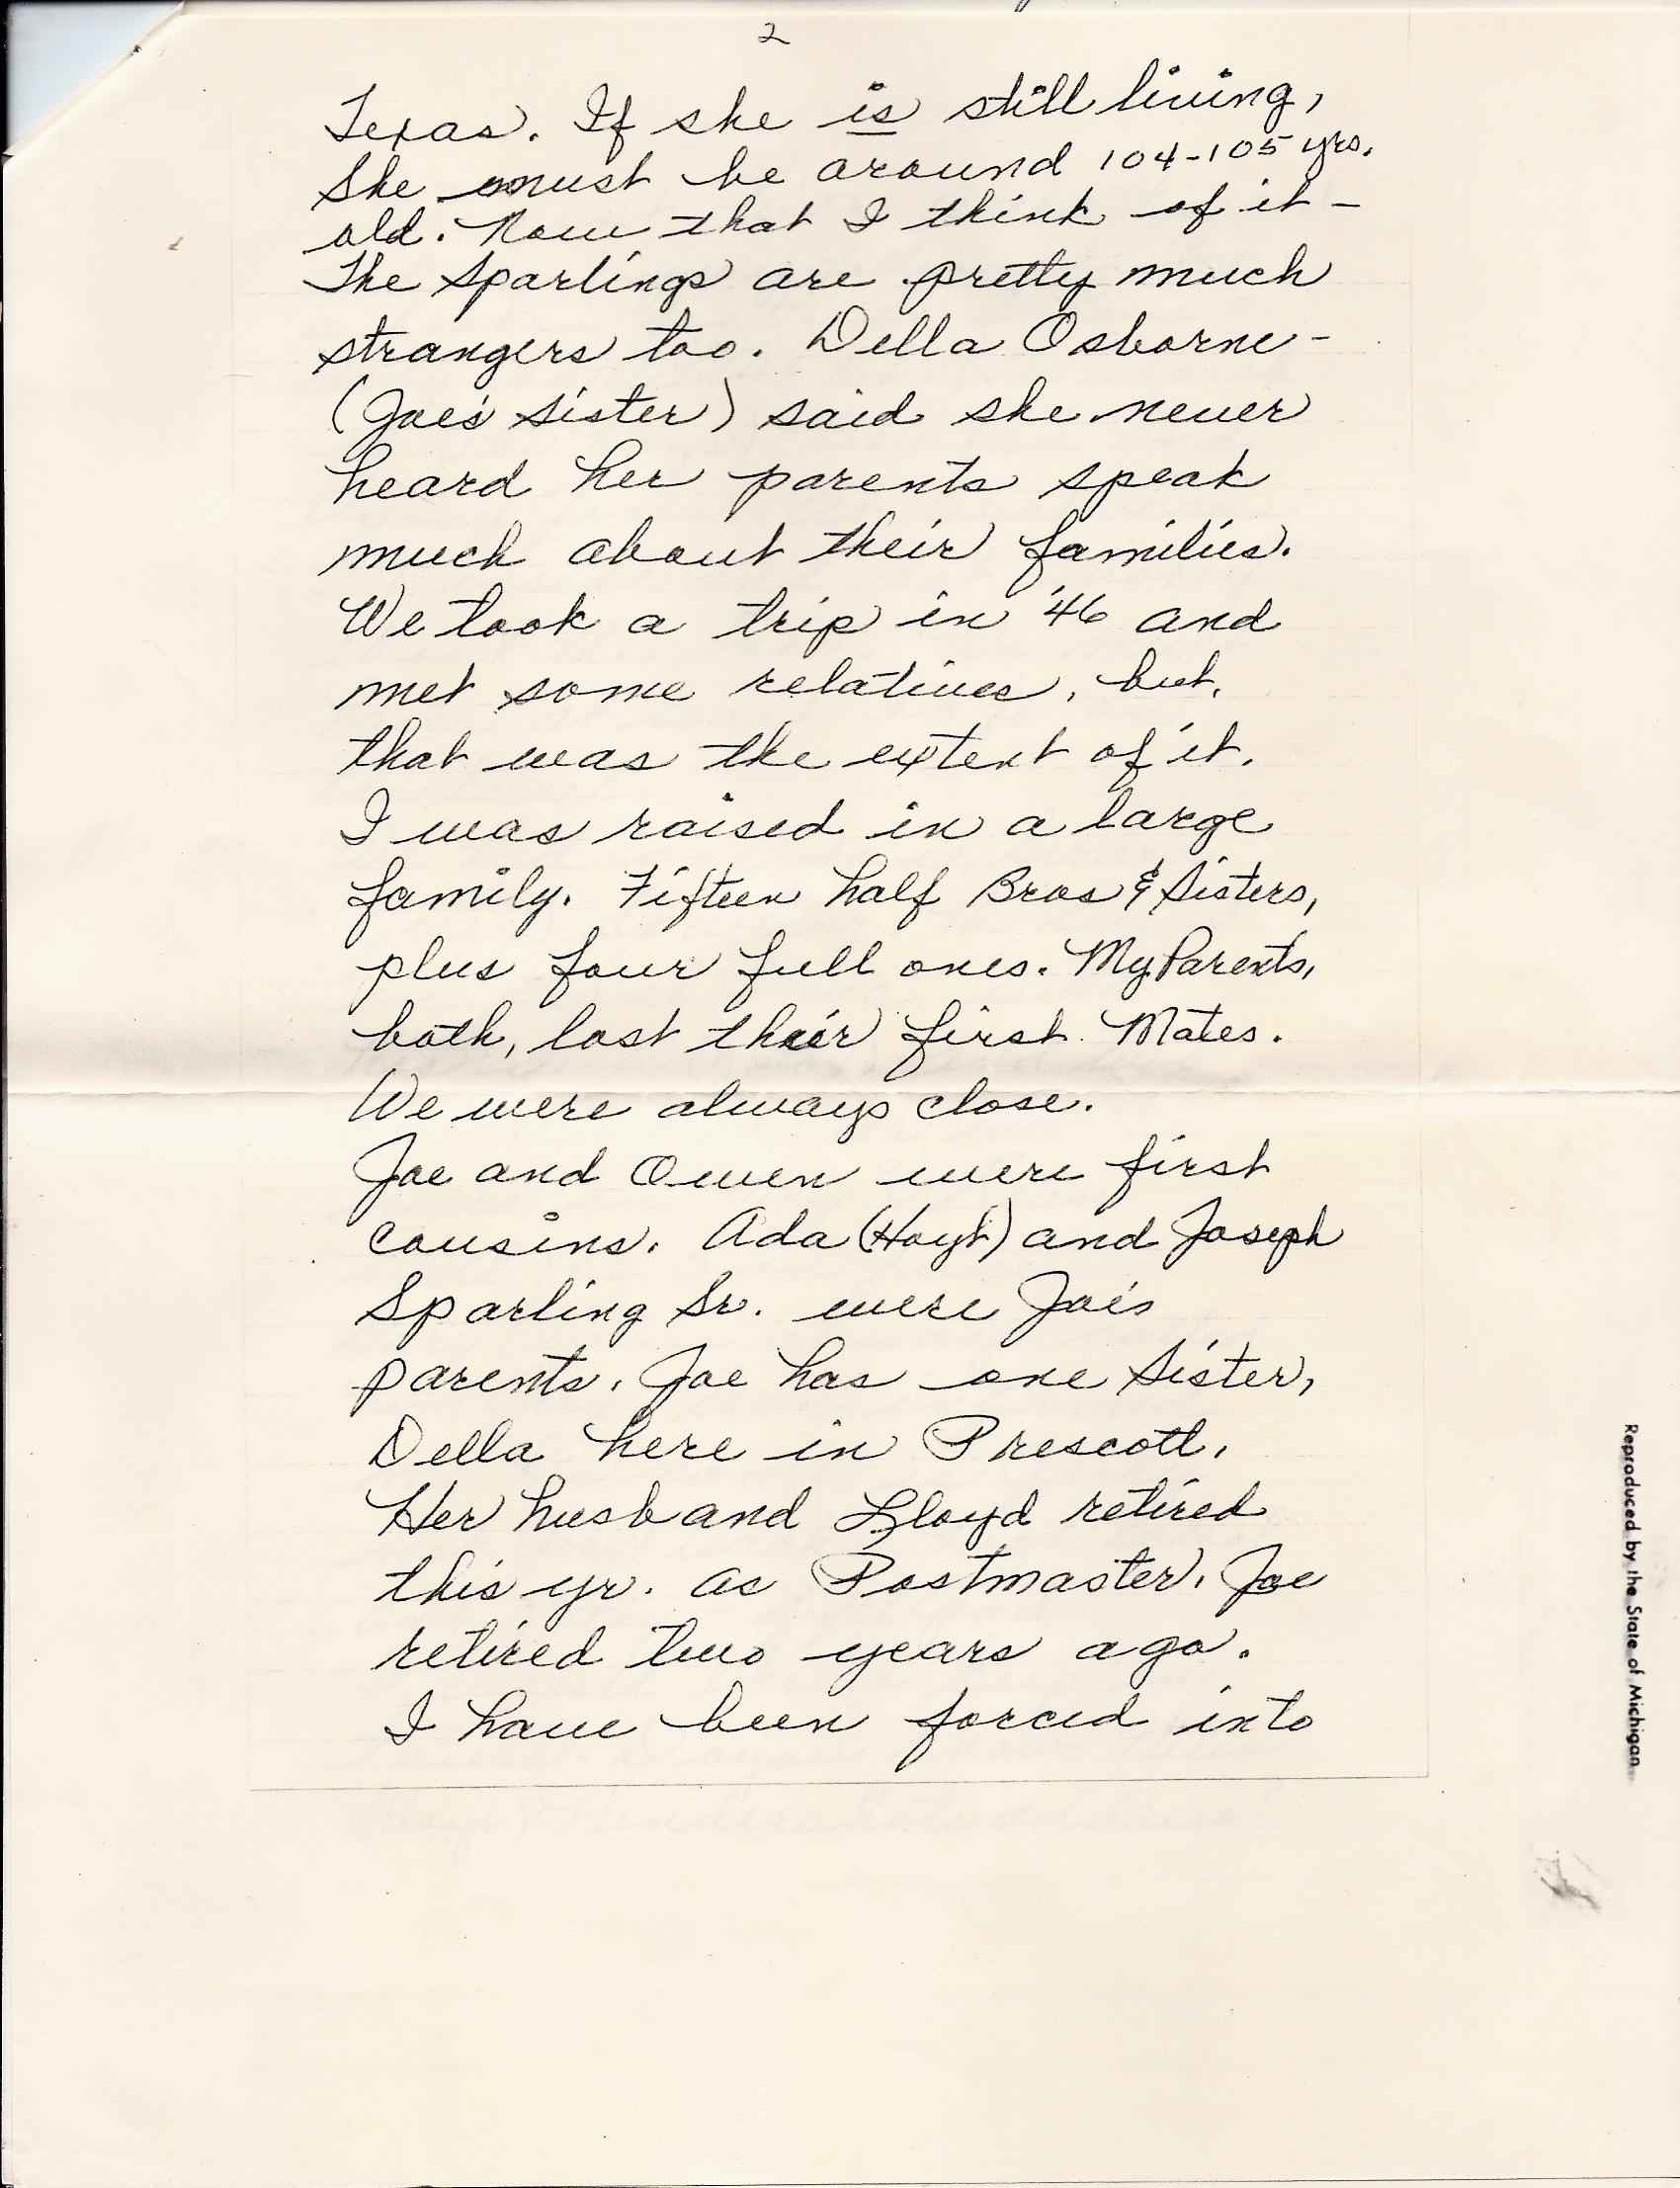 2
Texas. If she is still living,
She must be around 104-105 yrs.
old. Now that I think of it -
The Sparlings are pretty much
strangers too. Della Osborne -
(Joe's sister) said she never
heard her parents speak
much about their families.
We took a trip in '46 and
met some relatives, but,
that was the extent of it.
I was raised in a large
family. Fifteen half Bros & Sisters,
plus four full ones. My Parents,
both, lost their first Mates.
We were always close.
Joe and Owen were first
cousins. Ada (Hoyt) and Joseph
Sparling Sr. were Joe's
parents. Joe has one sister,
Della here in Prescott.
Her husband Lloyd retired
this yr. as Postmaster. Joe
retired two years ago.
I have been forced into
Reproduced by the State of Michigan